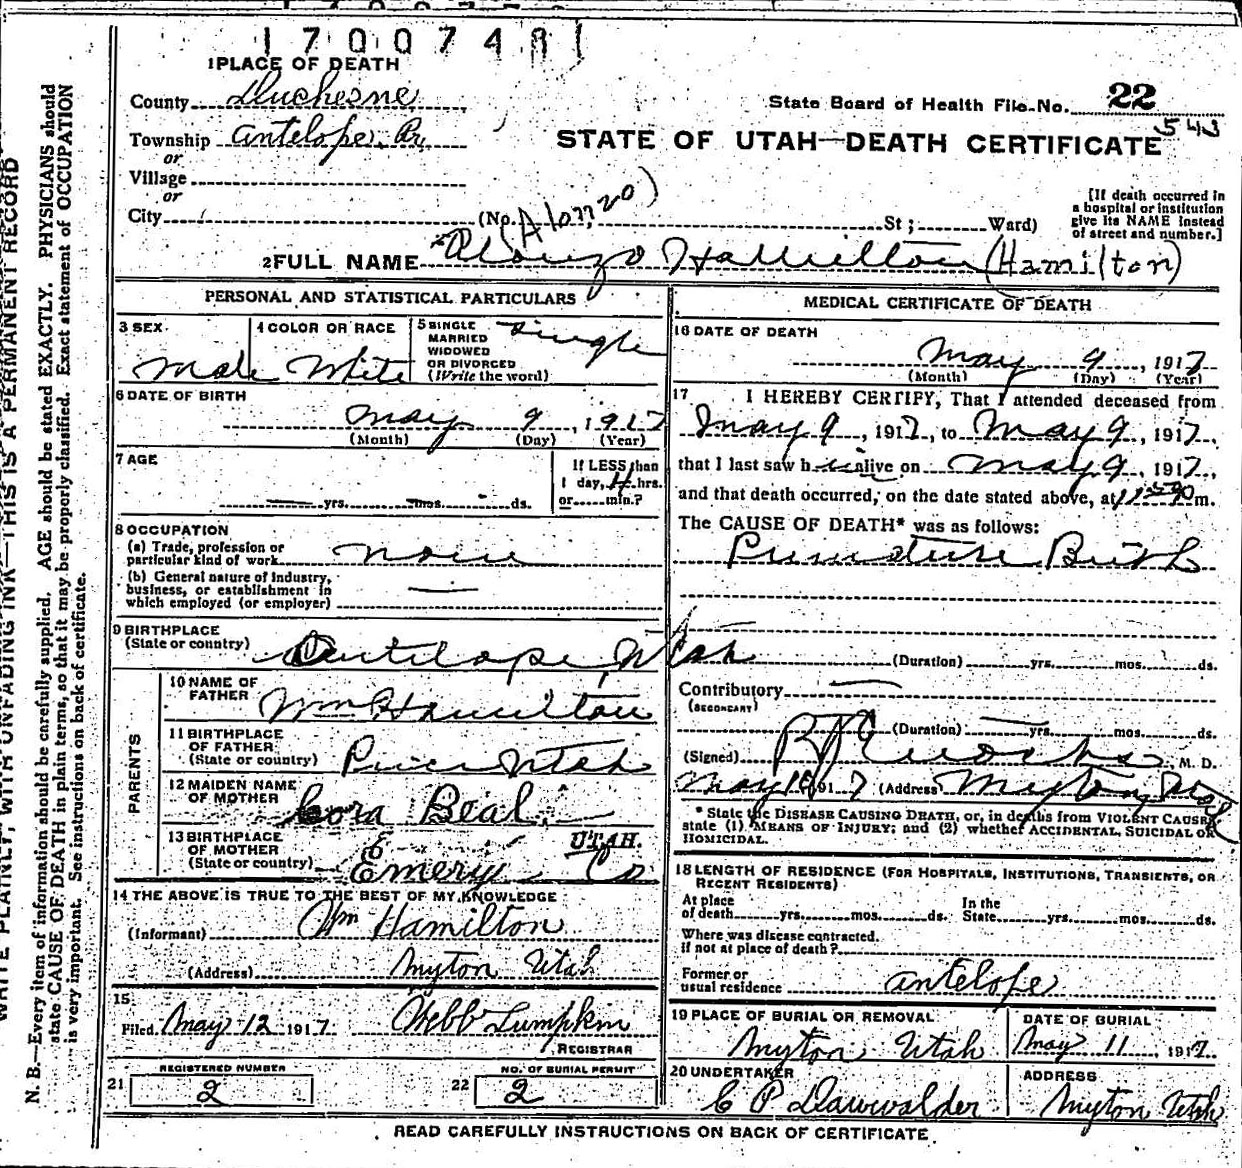 1700748
1 PLACE OF DEATH
County Duchesne
State Board of Health File No. 22
543
Township Antelope Pr.
STATE OF UTAH—DEATH CERTIFICATE
or
Village
or
City (No. St; Ward)
[If death occurred in a hospital or institution give its NAME instead of street and number.]
(Alonzo)
2 FULL NAME Alonzo Hamilton (Hamilton)
PERSONAL AND STATISTICAL PARTICULARS
3 SEX Male
4 COLOR OR RACE White
5 SINGLE MARRIED WIDOWED OR DIVORCED (Write the word) Single
6 DATE OF BIRTH
May 9, 1917
(Month) (Day) (Year)
7 AGE
yrs. mos. ds.
If LESS than 1 day, 4 hrs. or min.?
8 OCCUPATION
(a) Trade, profession or particular kind of work none
(b) General nature of industry, business, or establishment in which employed (or employer)
9 BIRTHPLACE (State or country) Antelope, Utah
PARENTS
10 NAME OF FATHER Wm Hamilton
11 BIRTHPLACE OF FATHER (State or country) Price Utah
12 MAIDEN NAME OF MOTHER Cora Beal
13 BIRTHPLACE OF MOTHER (State or country) Emery Co UTAH.
14 THE ABOVE IS TRUE TO THE BEST OF MY KNOWLEDGE
(Informant) Wm Hamilton
(Address) Myton Utah
15
Filed May 12 1917 Webb Lumpkin
REGISTRAR
21 REGISTERED NUMBER 2
22 NO. OF BURIAL PERMIT 2
MEDICAL CERTIFICATE OF DEATH
16 DATE OF DEATH
May 9, 1917
(Month) (Day) (Year)
17 I HEREBY CERTIFY, That I attended deceased from
May 9, 1917, to May 9, 1917,
that I last saw him alive on May 9, 1917,
and that death occurred, on the date stated above, at m.
The CAUSE OF DEATH* was as follows:
Premature Birth
(Duration) yrs. mos. ds.
Contributory
(SECONDARY)
(Duration) yrs. mos. ds.
(Signed) M. D.
May 1917 (Address) Myton, Utah
* State the DISEASE CAUSING DEATH, or, in deaths from VIOLENT CAUSES, state (1) MEANS OF INJURY; and (2) whether ACCIDENTAL, SUICIDAL OR HOMICIDAL.
18 LENGTH OF RESIDENCE (FOR HOSPITALS, INSTITUTIONS, TRANSIENTS, OR RECENT RESIDENTS)
At place of death yrs. mos. ds. In the State yrs. mos. ds.
Where was disease contracted, if not at place of death?
Former or usual residence Antelope
19 PLACE OF BURIAL OR REMOVAL Myton Utah
DATE OF BURIAL May 11, 1917
20 UNDERTAKER C P Dawwalder
ADDRESS Myton Utah
READ CAREFULLY INSTRUCTIONS ON BACK OF CERTIFICATE.
WRITE PLAINLY, WITH UNFADING INK—THIS IS A PERMANENT RECORD
N. B.—Every item of information should be carefully supplied. AGE should be stated EXACTLY. PHYSICIANS should
state CAUSE OF DEATH in plain terms, so that it may be properly classified. Exact statement of OCCUPATION
is very important. See instructions on back of certificate.